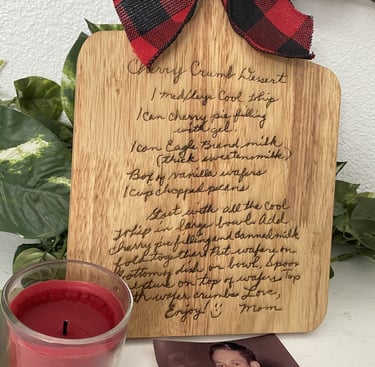 Cherry Crumb Desert
1 med/large Cool Whip
1 can Cherry pie filling
with gel.
1 can Eagle Brand milk
(thick sweetensmilk)
Box of vanilla wafers
1 cup chopped pecans
Start with all the Cool
Whip in large bowl. Add
cherry pie filling and canned milk
fold together. Put wafers in
bottom of dish or bowl, Spoon
mixture on top of wafers Top
with wafer crumbs Love,
Enjoy! Mom